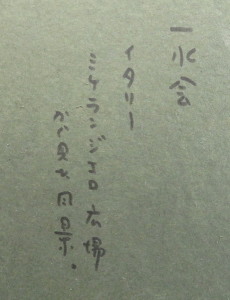 一水会
イタリー
ミケランジェロ広場
から見た風景.